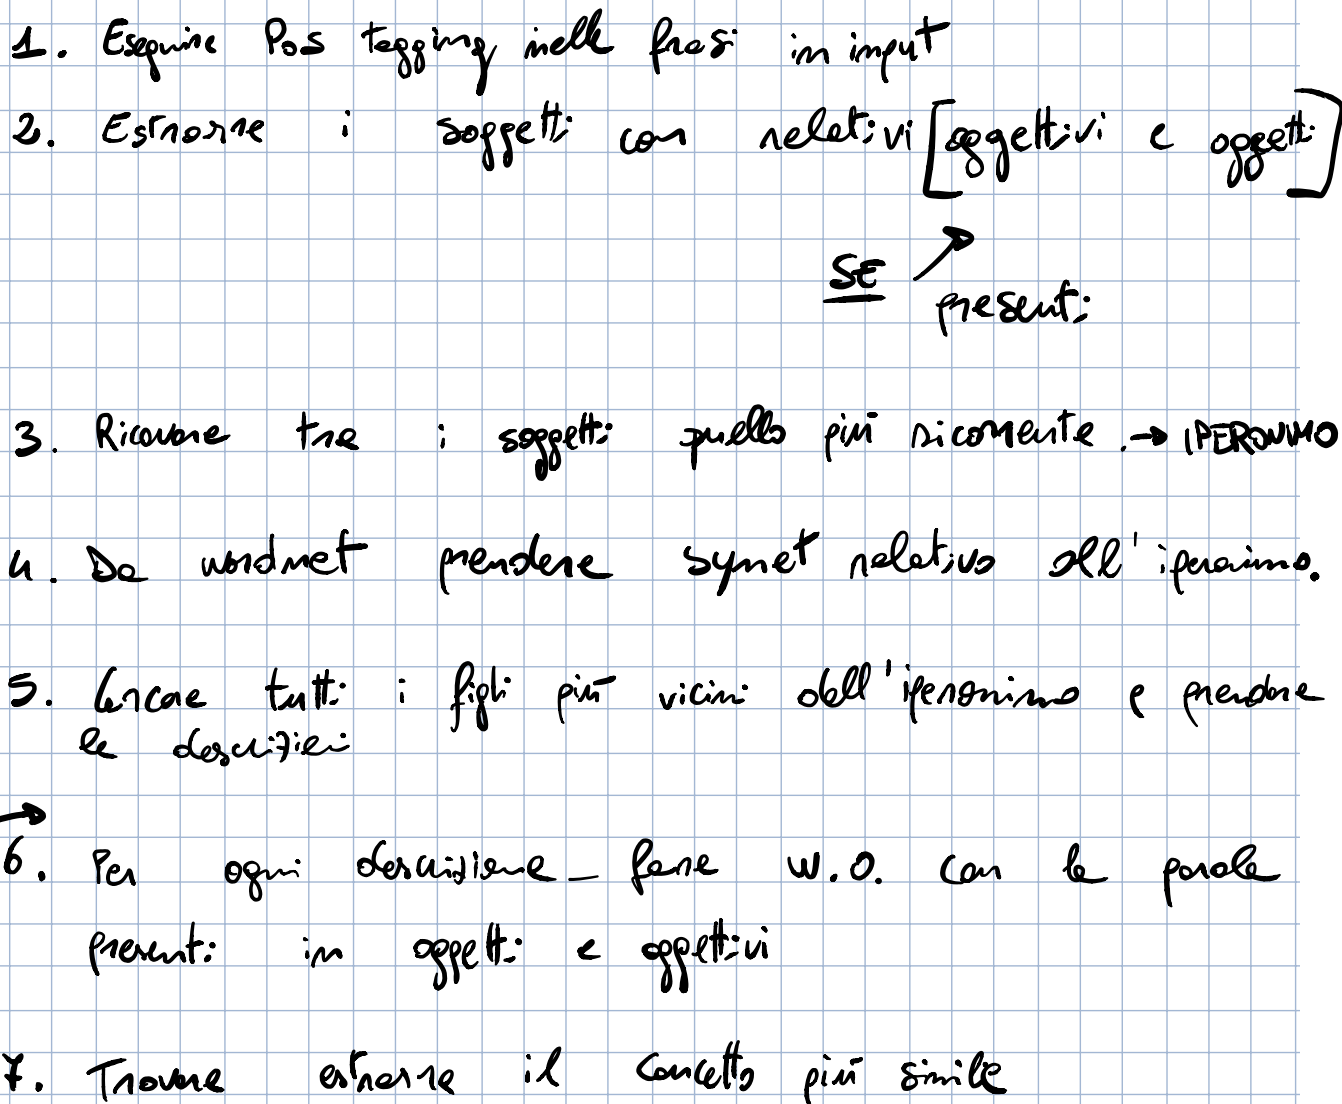 1. Eseguire Pos tagging nelle frasi in input
2. Estrarre i soggetti con relativi [aggettivi e oggetti]
SE
presenti
3. Ricavare tra i soggetti quello più ricorrente. → IPERONIMO
4. Da wordnet prendere synset relativo all'iperonimo.
5. Cercare tutti i figli più vicini dell'iperonimo e prendere
le descrizioni
→
6. Per ogni descrizione _ fare W.O. con le parole
presenti in oggetti e aggettivi
7. Trovare estrarre il concetto più simile